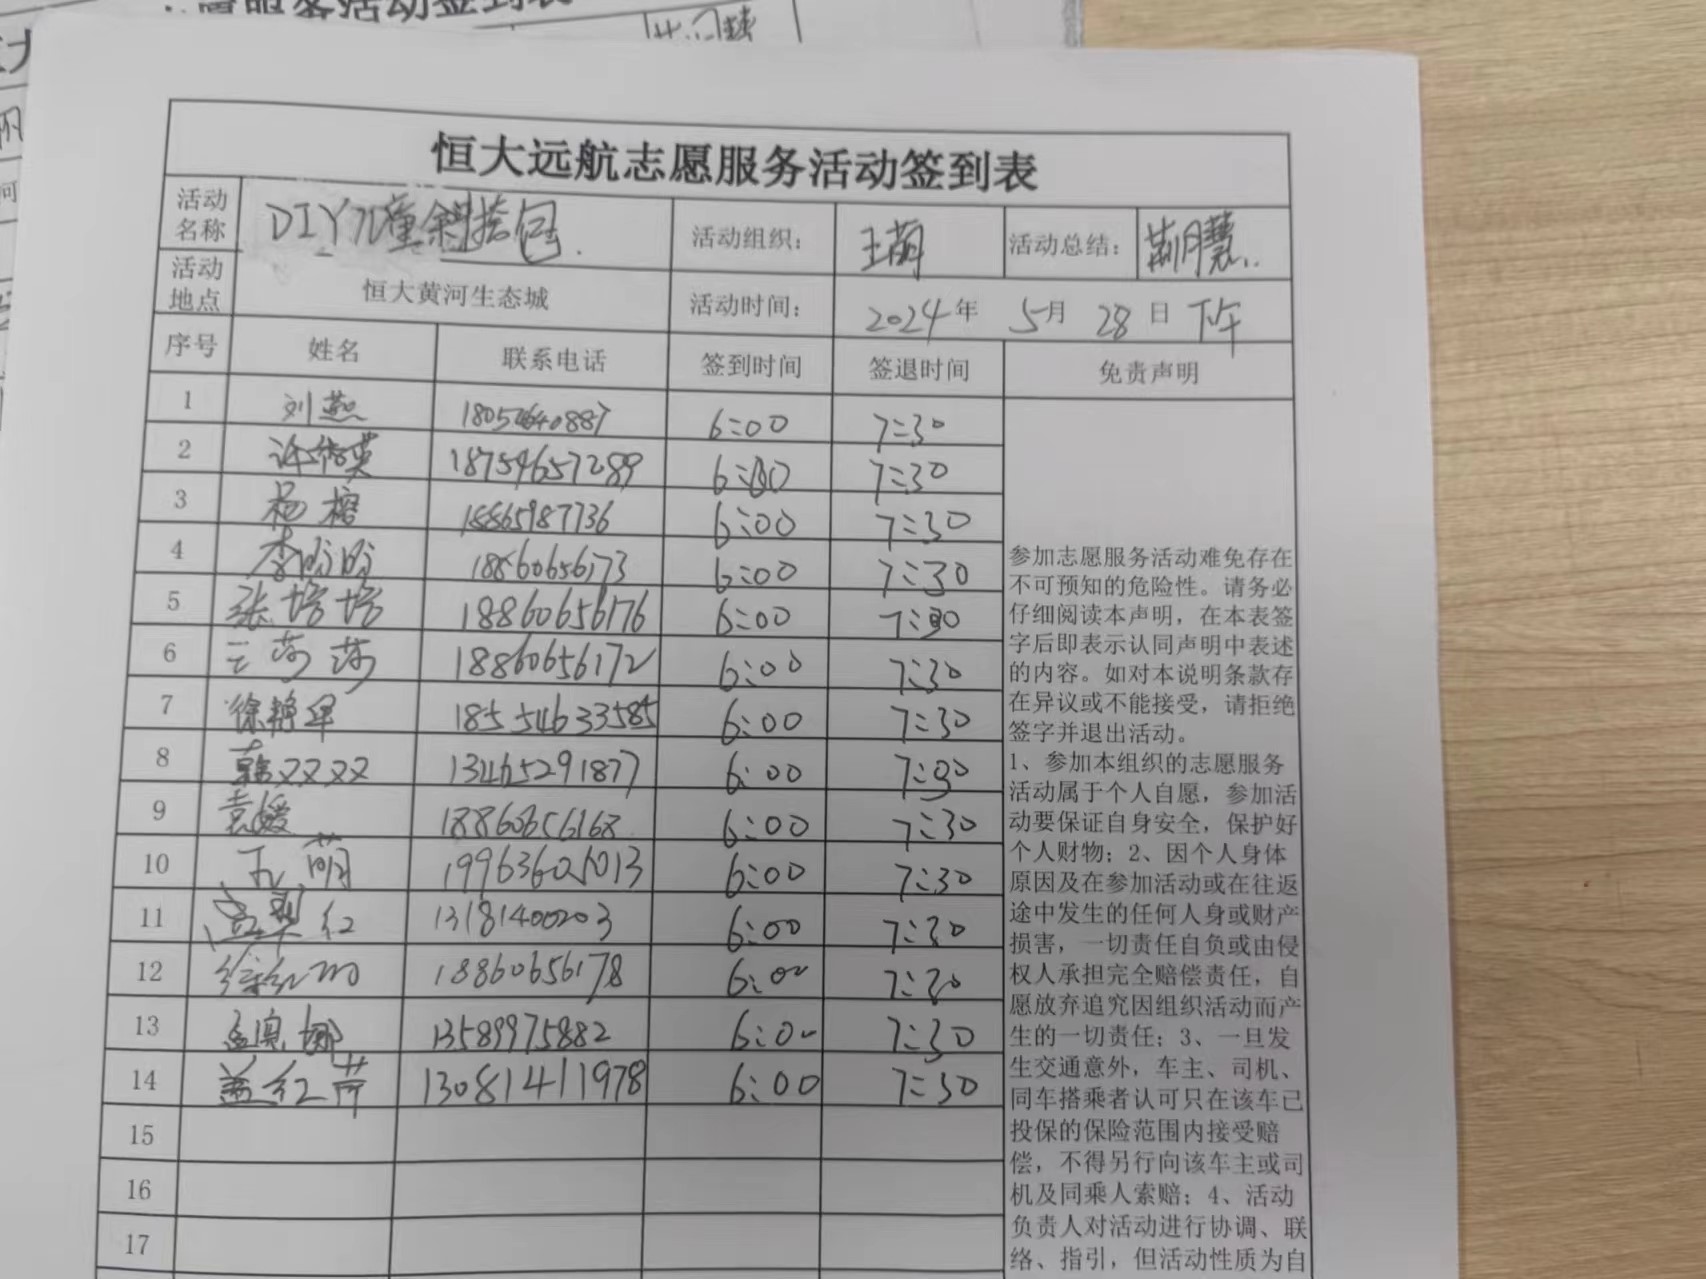 愿服务活动签到表
恒大远航志愿服务活动签到表
活动名称 DIY儿童斜挎包 活动组织: 王萌 活动总结: 荆月慧
活动地点 恒大黄河生态城 活动时间: 2024年 5月 28日 下午
序号 姓名 联系电话 签到时间 签退时间 免责声明
1 刘燕 6:00 7:30
2 18754657289 6:00 7:30
3 杨榕 18865987736 6:00 7:30
4 李盼盼 18860656173 6:00 7:30
5 张培培 18860656176 6:00 7:30
6 王莎莎 18860656172 6:00 7:30
7 徐艳翠 18554633585 6:00 7:30
8 韩双双 13465291877 6:00 7:30
9 袁媛 18860656168 6:00 7:30
10 王萌 19963605013 6:00 7:30
11 孟翠红 13181400203 6:00 7:30
12 徐红 18860656178 6:00 7:30
13 孟娜 13589975882 6:00 7:30
14 盖红苗 13081411978 6:00 7:30
15
16
17
参加志愿服务活动难免存在
不可预知的危险性。请务必
仔细阅读本声明，在本表签
字后即表示认同声明中表述
的内容。如对本说明条款存
在异议或不能接受，请拒绝
签字并退出活动。
1、参加本组织的志愿服务
活动属于个人自愿，参加活
动要保证自身安全，保护好
个人财物；2、因个人身体
原因及在参加活动或在往返
途中发生的任何人身或财产
损害，一切责任自负或由侵
权人承担完全赔偿责任，自
愿放弃追究因组织活动而产
生的一切责任；3、一旦发
生交通意外，车主、司机、
同车搭乘者认可只在该车已
投保的保险范围内接受赔
偿，不得另行向该车主或司
机及同乘人索赔；4、活动
负责人对活动进行协调、联
络、指引，但活动性质为自